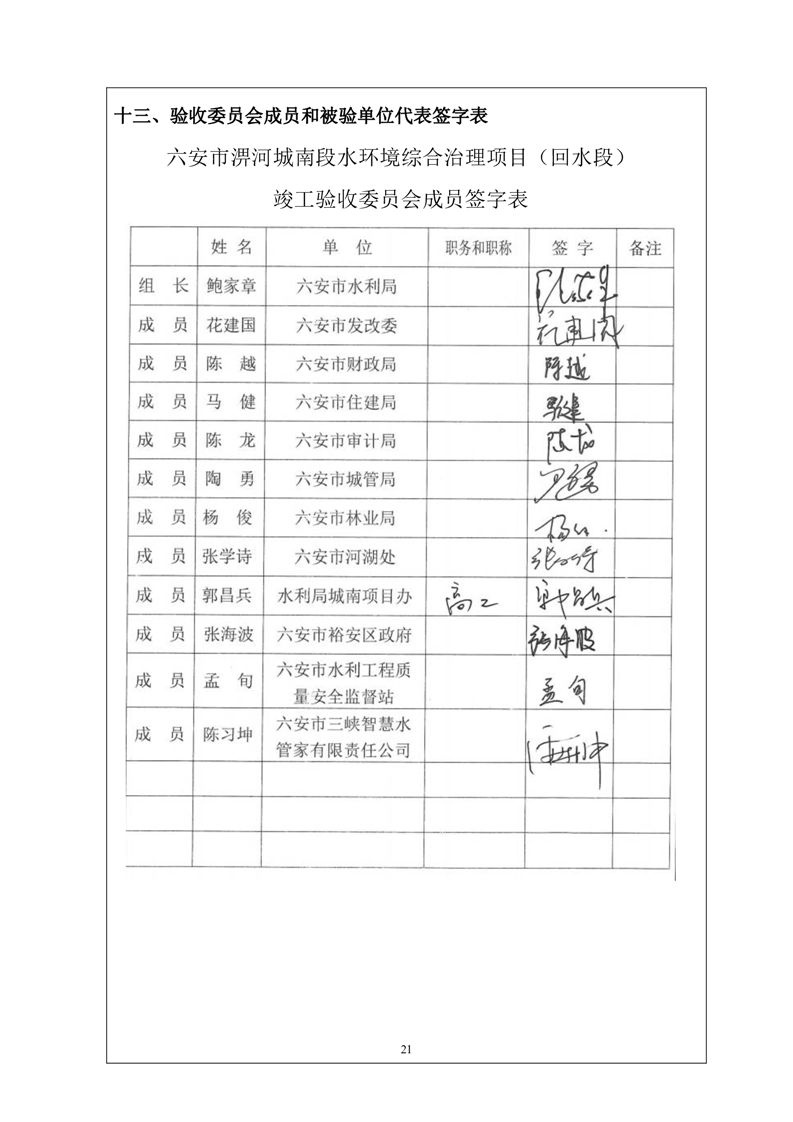 十三、验收委员会成员和被验单位代表签字表
六安市淠河城南段水环境综合治理项目（回水段）
竣工验收委员会成员签字表
姓 名 单 位 职务和职称 签 字 备注
组 长 鲍家章 六安市水利局
成 员 花建国 六安市发改委
成 员 陈 越 六安市财政局 陈越
成 员 马 健 六安市住建局 马健
成 员 陈 龙 六安市审计局 陈龙
成 员 陶 勇 六安市城管局
成 员 杨 俊 六安市林业局
成 员 张学诗 六安市河湖处
成 员 郭昌兵 水利局城南项目办 高工
成 员 张海波 六安市裕安区政府 张海波
成 员 孟 旬 六安市水利工程质
量安全监督站 孟旬
成 员 陈习坤 六安市三峡智慧水
管家有限责任公司
21